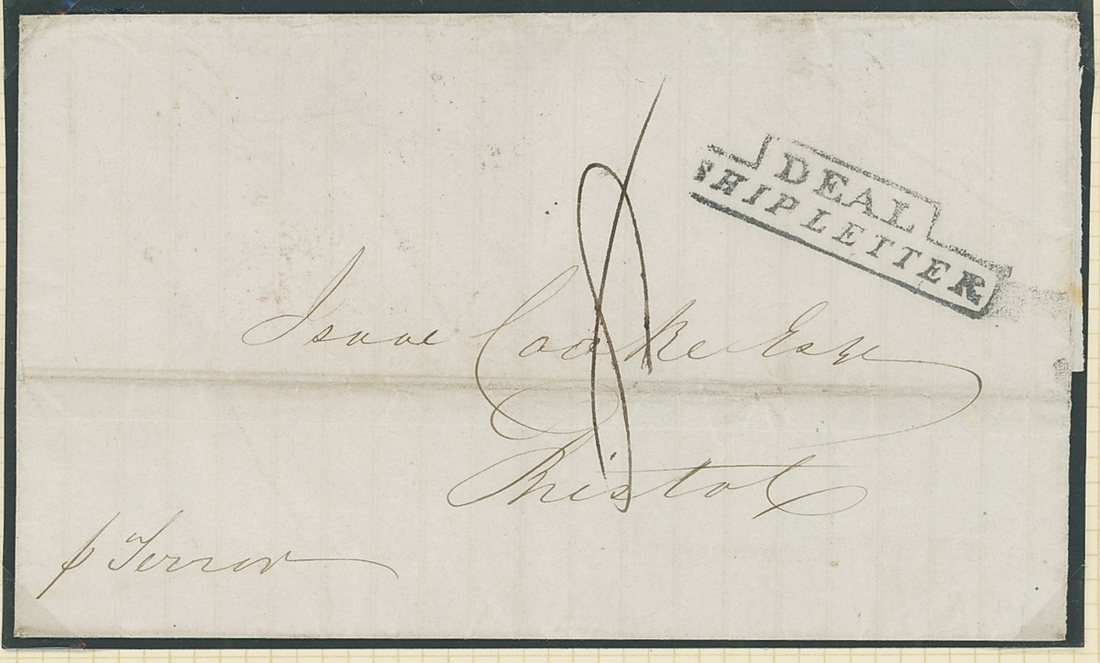 DEAL
SHIP LETTER
8
Isaac Cooke Esqr
Bristol
p Terror